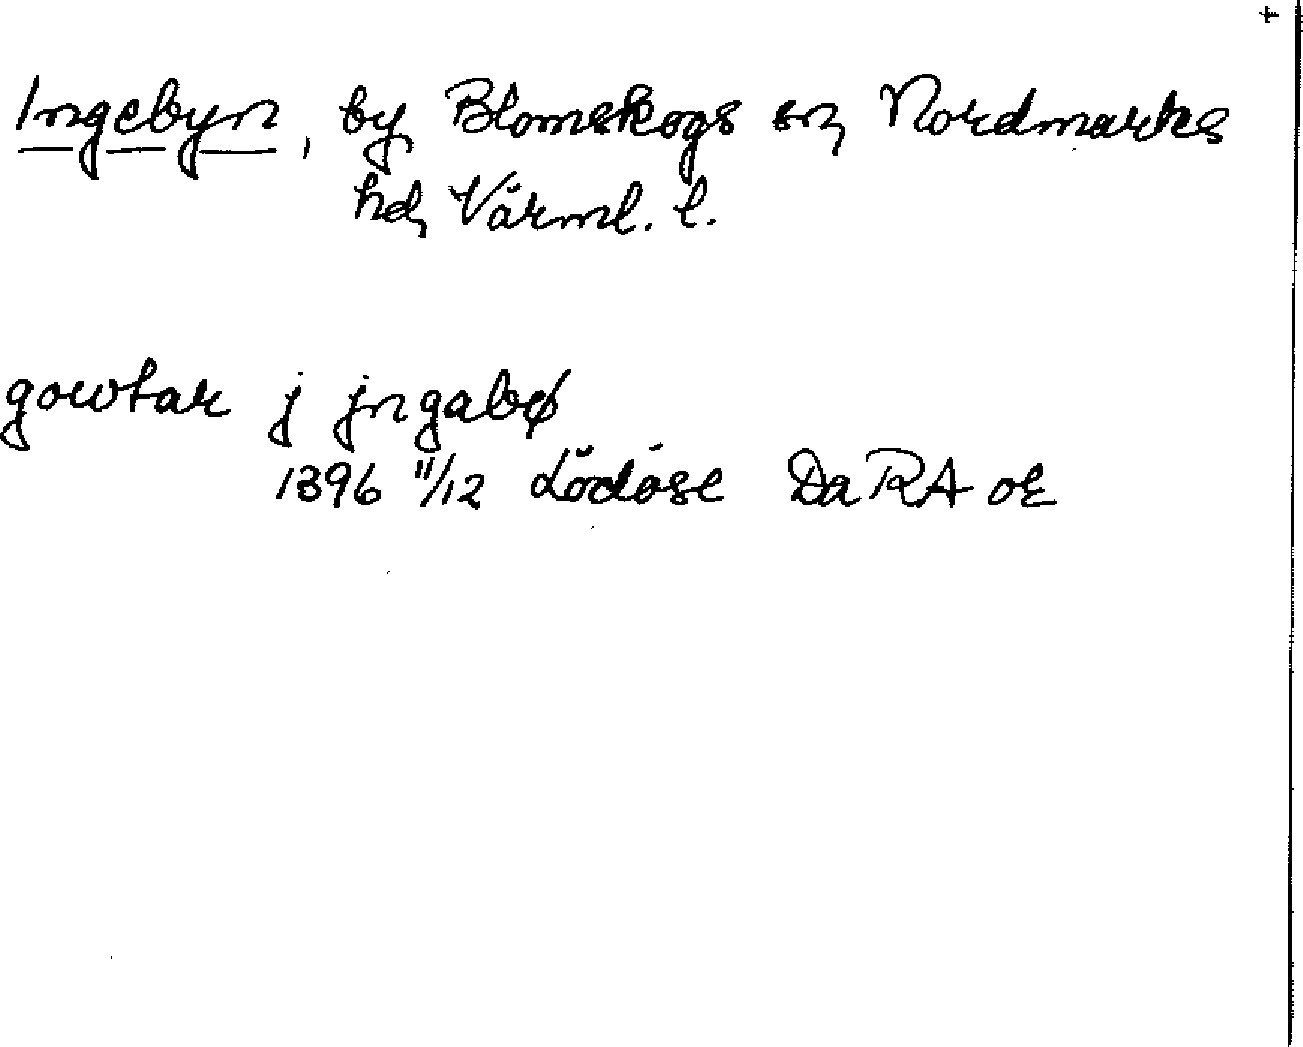 +
Ingebyn, by, Blomskogs sn, Nordmarks
hd, Värml. l.
gowtar j jngabø
1396 11/12 Lödöse DaRA or